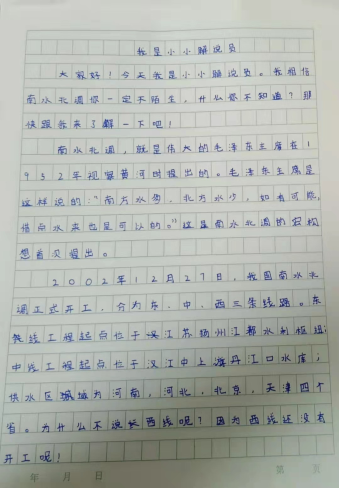 我是小小解说员
大家好！今天我是小小解说员。我相信
南水北调你一定不陌生，什么你不知道？那
快跟我来了解一下吧！
南水北调，就是伟大的毛泽东主席在1
952年视察黄河时提出的。毛泽东主席是
这样说的："南方水多，北方水少，如有可能，
借点水来也是可以的。"这是南水北调的宏观
想首次提出。
2002年12月27日，我国南水北
调正式开工，分为东、中、西三条线路。东
线工程起点位于江苏扬州江都水利枢纽；
中线工程起点位于汉江中上游丹江口水库；
供水区域为河南，河北，北京，天津四个
省。为什么不说西线呢？因为西线还没有
开工呢！
年 月 日 第 页